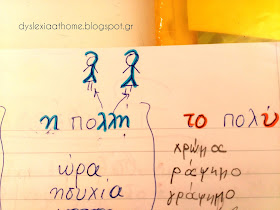 dyslexiaathome.blogspot.gr
η πολλή
ώρα
ησυχία
το πολυ
χρώμα
ράψιμο
γράψιμο